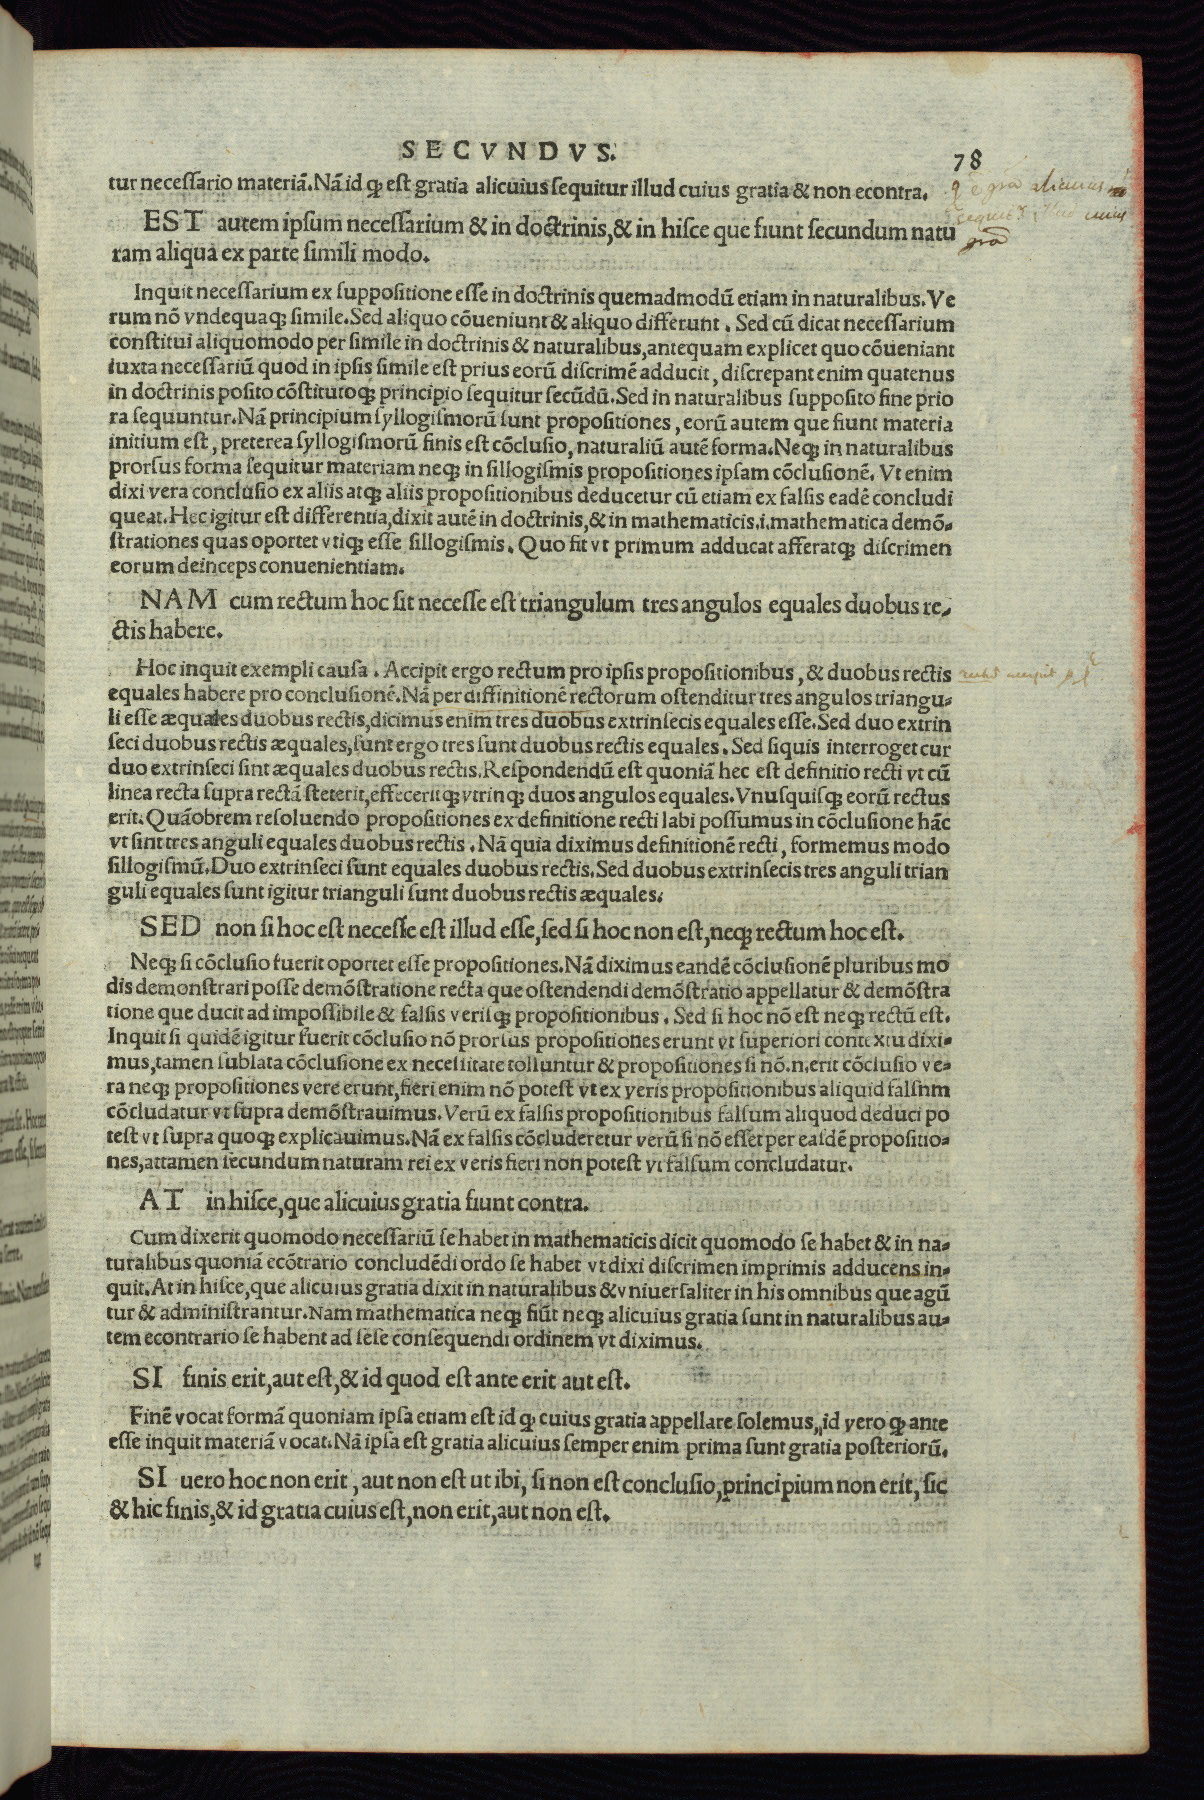 SECVNDVS.
78
tur necessario materiã. Nã id qȝ est gratia alicuius sequitur illud cuius gratia & non econtra.
EST autem ipsum necessarium & in doctrinis, & in hisce que fiunt secundum natu
ram aliqua ex parte simili modo.
Inquit necessarium ex suppositione esse in doctrinis quemadmodũ etiam in naturalibus. Ve
rum nõ vndequaqȝ simile. Sed aliquo cõueniunt & aliquo differunt. Sed cũ dicat necessarium
constitui aliquomodo per simile in doctrinis & naturalibus, antequam explicet quo cõueniant
iuxta necessariũ quod in ipsis simile est prius eorũ discrimẽ adducit, discrepant enim quatenus
in doctrinis posito cõstitutoqȝ principio sequitur secũdũ. Sed in naturalibus supposito fine prio
ra sequuntur. Nã principium syllogismorũ sunt propositiones, eorũ autem que fiunt materia
initium est, preterea syllogismorũ finis est cõclusio, naturaliũ autẽ forma. Neqȝ in naturalibus
prorsus forma sequitur materiam neqȝ in sillogismis propositiones ipsam cõclusionẽ. Vt enim
dixi vera conclusio ex aliis atqȝ aliis propositionibus deducetur cũ etiam ex falsis eadẽ concludi
queat. Hec igitur est differentia, dixit autẽ in doctrinis, & in mathematicis. i. mathematica demõ-
strationes quas oportet vtiqȝ esse sillogismis. Quo fit vt primum adducat afferatqȝ discrimen
eorum deinceps conuenientiam.
NAM cum rectum hoc sit necesse est triangulum tres angulos equales duobus re-
ctis habere.
Hoc inquit exempli causa. Accipit ergo rectum pro ipsis propositionibus, & duobus rectis
equales habere pro conclusionẽ. Nã per diffinitionẽ rectorum ostenditur tres angulos triangu-
li esse æquales duobus rectis, dicimus enim tres duobus extrinsecis equales esse. Sed duo extrin
seci duobus rectis æquales, sunt ergo tres sunt duobus rectis equales. Sed siquis interroget cur
duo extrinseci sint æquales duobus rectis. Respondendũ est quoniã hec est definitio recti vt cũ
linea recta supra rectã steterit, effeceritqȝ vtrinqȝ duos angulos equales. Vnusquisqȝ eorũ rectus
erit. Quãobrem resoluendo propositiones ex definitione recti labi possumus in cõclusione hãc
vt sint tres anguli equales duobus rectis. Nã quia diximus definitionẽ recti, formemus modo
sillogismũ. Duo extrinseci sunt equales duobus rectis. Sed duobus extrinsecis tres anguli trian
guli equales sunt igitur trianguli sunt duobus rectis æquales.
SED non si hoc est necesse est illud esse, sed si hoc non est, neqȝ rectum hoc est.
Neqȝ si cõclusio fuerit oportet esse propositiones. Nã diximus eandẽ cõclusionẽ pluribus mo
dis demonstrari posse demõstratione recta que ostendendi demõstratio appellatur & demõstra
tione que ducit ad impossibile & falsis verisqȝ propositionibus. Sed si hoc nõ est neqȝ rectũ est.
Inquit si quidẽ igitur fuerit cõclusio nõ prorsus propositiones erunt vt superiori contextu dixi-
mus, tamen sublata cõclusione ex necessitate tolluntur & propositiones si nõ. n. erit cõclusio ve-
ra neqȝ propositiones vere erunt, fieri enim nõ potest vt ex veris propositionibus aliquid falsnm
cõcludatur vt supra demõstrauimus. Verũ ex falsis propositionibus falsum aliquod deduci po
test vt supra quoqȝ explicauimus. Nã ex falsis cõcluderetur verũ si nõ esset per easdẽ propositio-
nes, attamen secundum naturam rei ex veris fieri non potest vt falsum concludatur.
AT in hisce, que alicuius gratia fiunt contra.
Cum dixerit quomodo necessariũ se habet in mathematicis dicit quomodo se habet & in na-
turalibus quoniã ecõtrario concludẽdi ordo se habet vt dixi discrimen imprimis adducens in-
quit. At in hisce, que alicuius gratia dixit in naturalibus & vniuersaliter in his omnibus que agũ
tur & administrantur. Nam mathematica neqȝ fiũt neqȝ alicuius gratia sunt in naturalibus au-
tem econtrario se habent ad sese consequendi ordinem vt diximus.
SI finis erit, aut est, & id quod est ante erit aut est.
Finẽ vocat formã quoniam ipsa etiam est id qȝ cuius gratia appellare solemus, id vero qȝ ante
esse inquit materiã vocat. Nã ipsa est gratia alicuius semper enim prima sunt gratia posteriorũ.
SI uero hoc non erit, aut non est ut ibi, si non est conclusio, principium non erit, sic
& hic finis, & id gratia cuius est, non erit, aut non est.